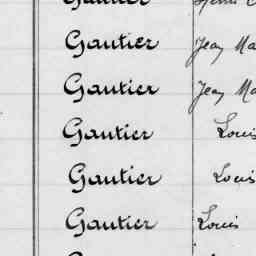 Gautier
Gautier Jean Ma
Gautier Jean Ma
Gautier Louis
Gautier Louis
Gautier Louis